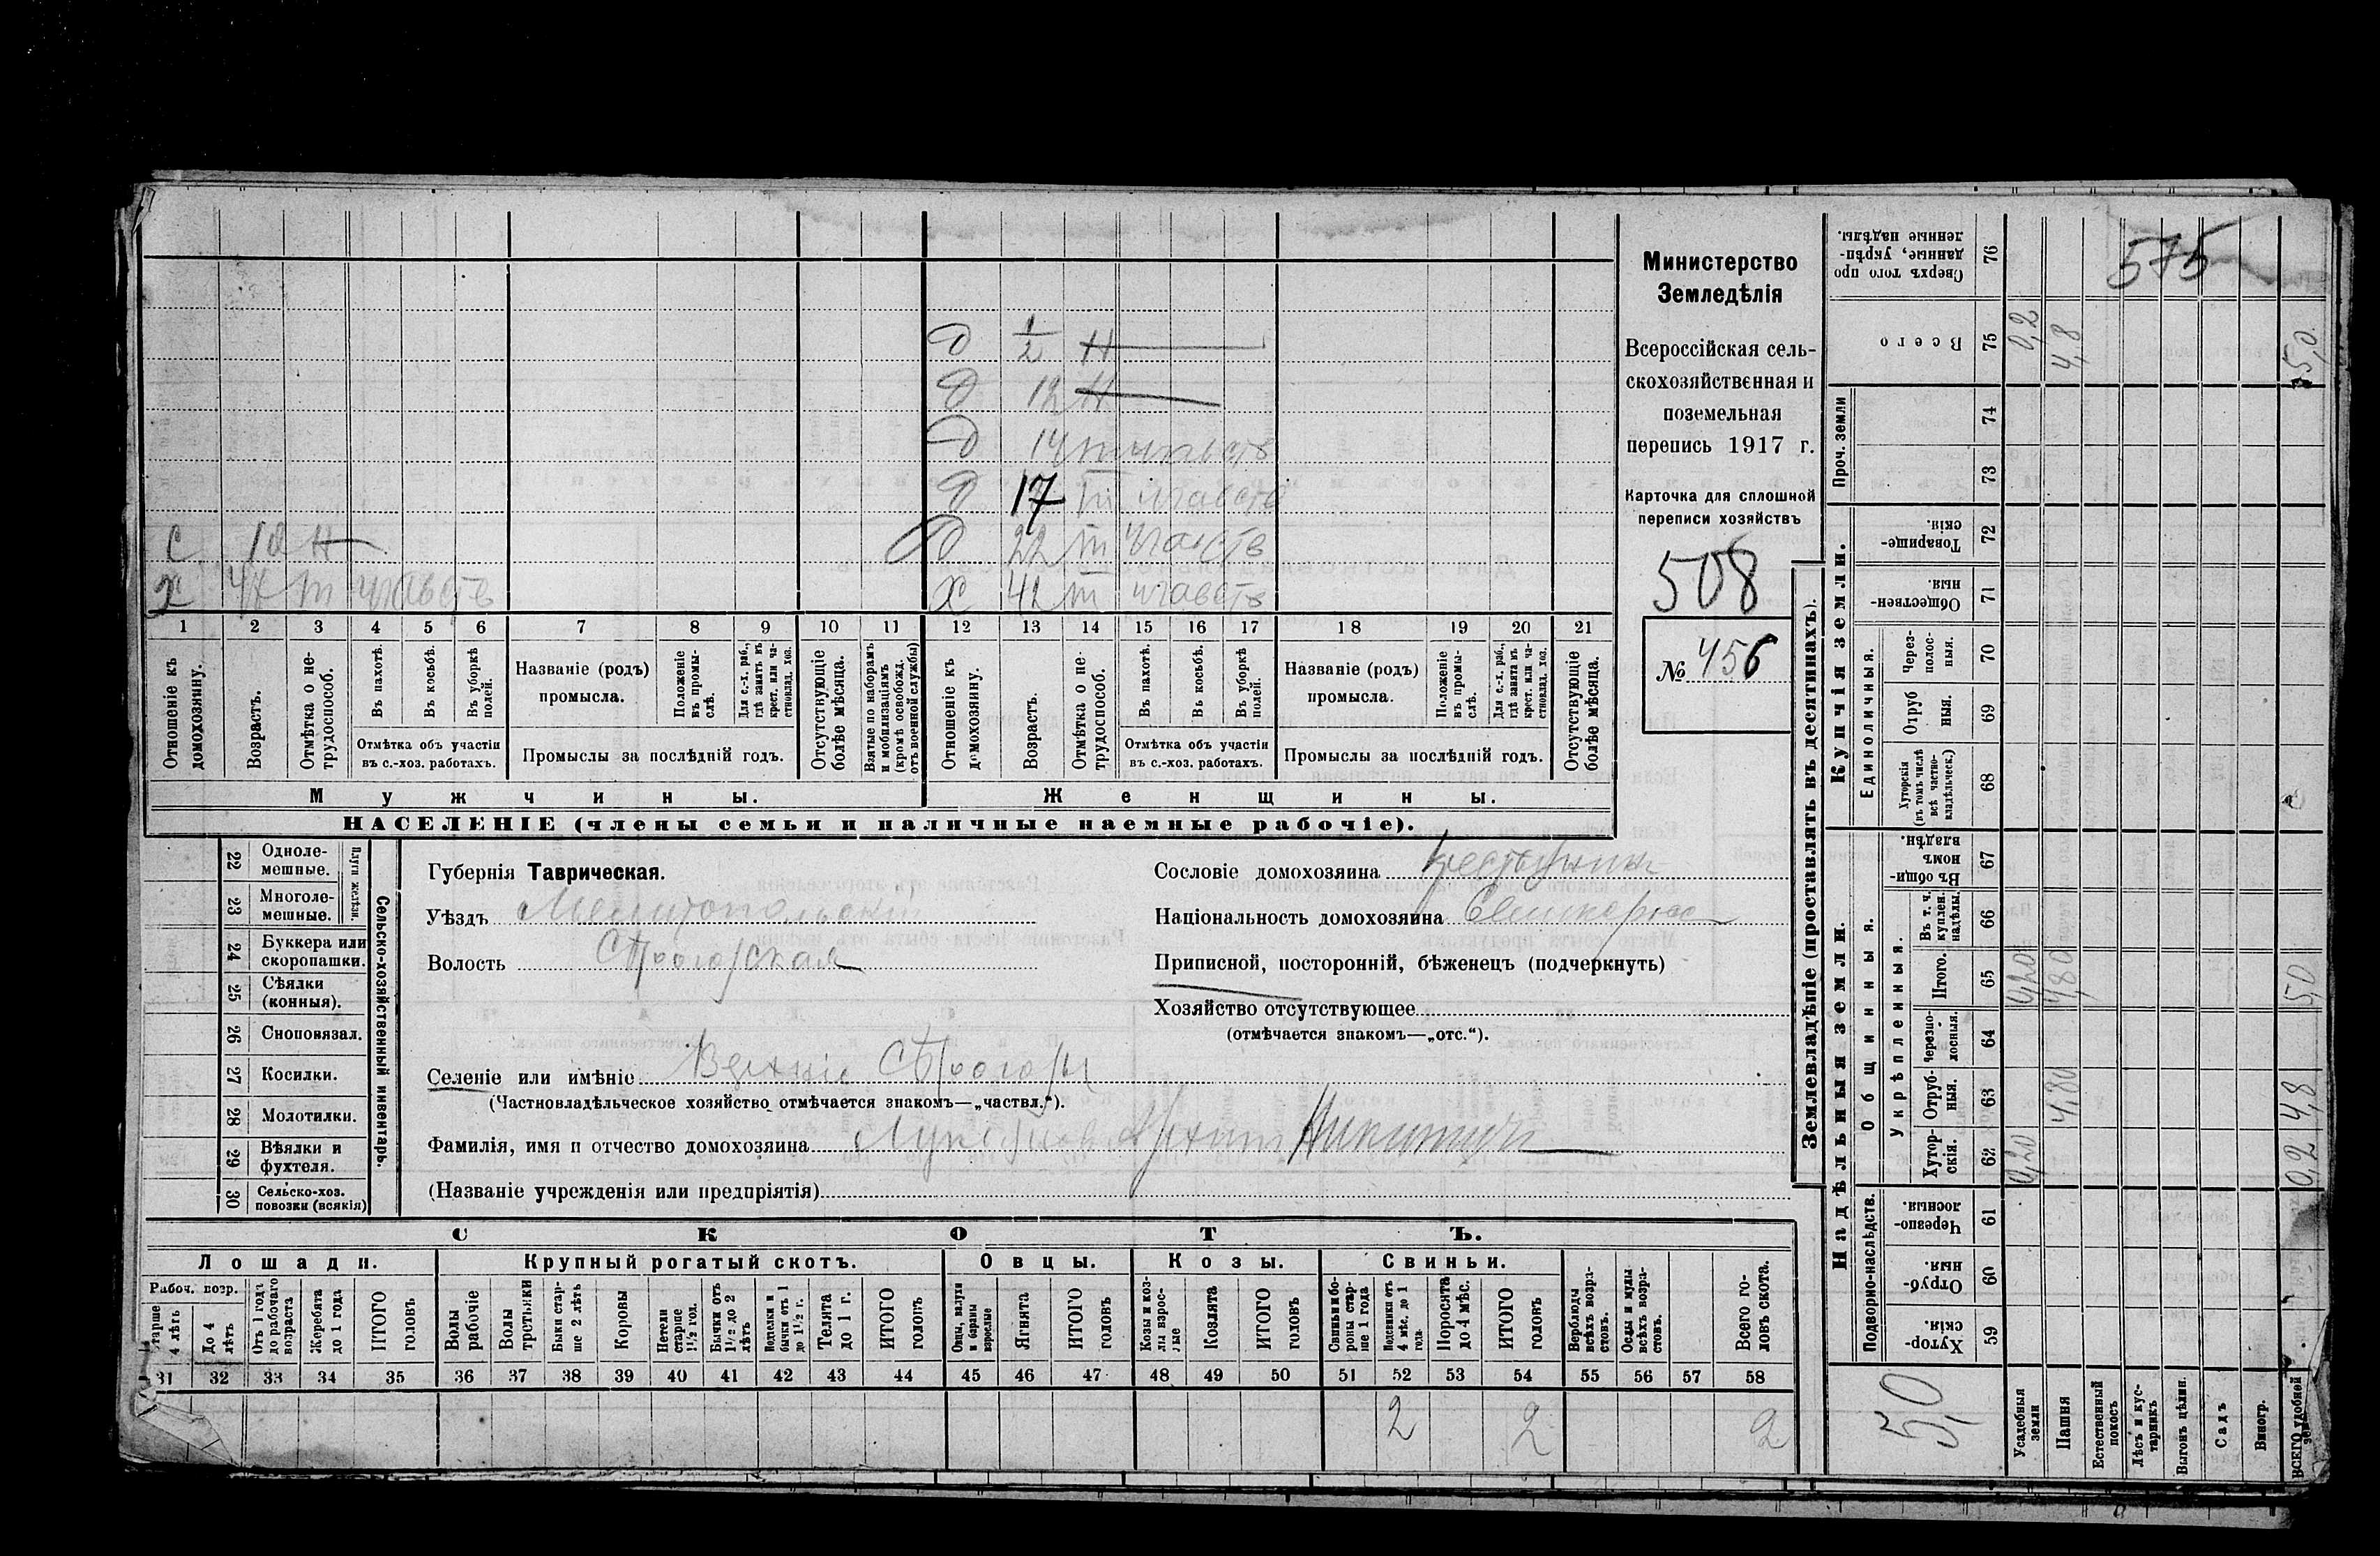 575
Министерство
Земледѣлія
Всероссійская сель-
скохозяйственная и
поземельная
перепись 1917 г.
Карточка для сплошной
переписи хозяйствъ
508
№ 456
д 1/2 н
д 12 н
д 14
д 17 участв
с 10 н д 22 участв
х 47 участв х 42 участв
1 2 3 4 5 6 7 8 9 10 11 12 13 14 15 16 17 18 19 20 21
Отношеніе къ домохозяину.
Возрастъ.
Отмѣтка о не-трудоспособ.
Въ пахотѣ.
Въ косьбѣ.
Въ уборкѣ полей.
Отмѣтка объ участіи
въ с.-хоз. работахъ.
Названіе (родъ)
промысла.
Положеніе въ промы-слѣ.
Для с.-х. раб., гдѣ занятъ въ крест. или ча-стновлад. хоз.
Промыслы за послѣдній годъ.
Отсутствующіе болѣе мѣсяца.
Взятые по наборамъ и мобилизаціямъ (кромѣ освобожд. отъ военной службы)
Отношеніе къ домохозяину.
Возрастъ.
Отмѣтка о не-трудоспособ.
Въ пахотѣ.
Въ косьбѣ.
Въ уборкѣ полей.
Отмѣтка объ участіи
въ с.-хоз. работахъ.
Названіе (родъ)
промысла.
Положеніе въ промы-слѣ.
Для с.-х. раб., гдѣ занята въ крест. или ча-стновлад. хоз.
Промыслы за послѣдній годъ.
Отсутствующіе болѣе мѣсяца.
Мужчины. Женщины.
НАСЕЛЕНІЕ (члены семьи и наличные наемные рабочіе).
Сельско-хозяйственный инвентарь.
Плуги желѣзн.
22 Одноле-мешные.
23 Многоле-мешные.
24 Буккера или скоропашки.
25 Сѣялки (конныя).
26 Сноповязал.
27 Косилки.
28 Молотилки.
29 Вѣялки и фухтеля.
30 Сельско-хоз. повозки (всякія)
Губернія Таврическая.
Уѣздъ Мелитопольскій
Волость Строгорская
Сословіе домохозяина крестьянинъ
Національность домохозяина Великороссъ
Приписной, посторонній, бѣженецъ (подчеркнуть)
Хозяйство отсутствующее
(отмѣчается знакомъ—„отс.“).
Селеніе или имѣніе Верхніе Строгоры
(Частновладѣльческое хозяйство отмѣчается знакомъ—„частвл.“).
Фамилія, имя и отчество домохозяина Архип Никитич
(Названіе учрежденія или предпріятія)
СКОТЪ.
Лошади. Крупный рогатый скотъ. Овцы. Козы. Свиньи.
Рабоч. возр.
Старше 4 лѣтъ
До 4 лѣтъ
Отъ 1 года до рабочаго возраста
Жеребята до 1 года
ИТОГО головъ
Волы рабочіе
Волы третьяки
Быки стар-ше 2 лѣтъ
Коровы
Нетели старше 1½ год.
Бычки отъ 1½ до 2 лѣтъ
Подтелки и бычки отъ 1 до 1½ г.
Телята до 1 г.
ИТОГО головъ
Овцы, валухи и бараны взрослые
Ягнята
ИТОГО головъ
Козы и коз-лы взрос-лые
Козлята
ИТОГО головъ
Свиньи и бо-ровы стар-ше 1 года
Подсвинки отъ 4 мѣс. до 1 года.
Поросята до 4 мѣс.
ИТОГО головъ
Верблюды всѣхъ возра-стовъ.
Ослы и мулы всѣхъ возра-стовъ.
Всего го-ловъ скота.
31 32 33 34 35 36 37 38 39 40 41 42 43 44 45 46 47 48 49 50 51 52 53 54 55 56 57 58
2 2 2
Землевладѣніе (проставлять въ десятинахъ).
Надѣльныя земли. Купчія земли. Проч. земли
Подворно-наслѣдств. Общинныя. Единоличныя.
Укрѣпленныя.
Хутор-скія. 59
Отруб-ныя. 60
Черезпо-лосныя. 61
Хутор-скія. 62
Отруб-ныя. 63
Черезпо-лосныя. 64
Итого. 65
Въ т. ч. куплен. надѣлы. 66
Въ общи-номъ владѣн. 67
Хуторскія (въ томъ числѣ всѣ частно-владѣльческ.) 68
Отруб ныя. 69
Через-полос-ныя. 70
Обществен-ныя. 71
Товарище-скія. 72
73
74
Всего 75
Сверхъ того про данные, укрѣп-ленные надѣлы. 76
5,0
Усадебныя земли 0,20 0,20 0,2
Пашня 4,80 4,80 4,8
Естественный покосъ
Лѣсъ и кус-тарникъ
Выгонъ цѣлин.
Садъ
Виногр.
ВСЕГО удобной земли 0,2 4,8 5,0 5,0